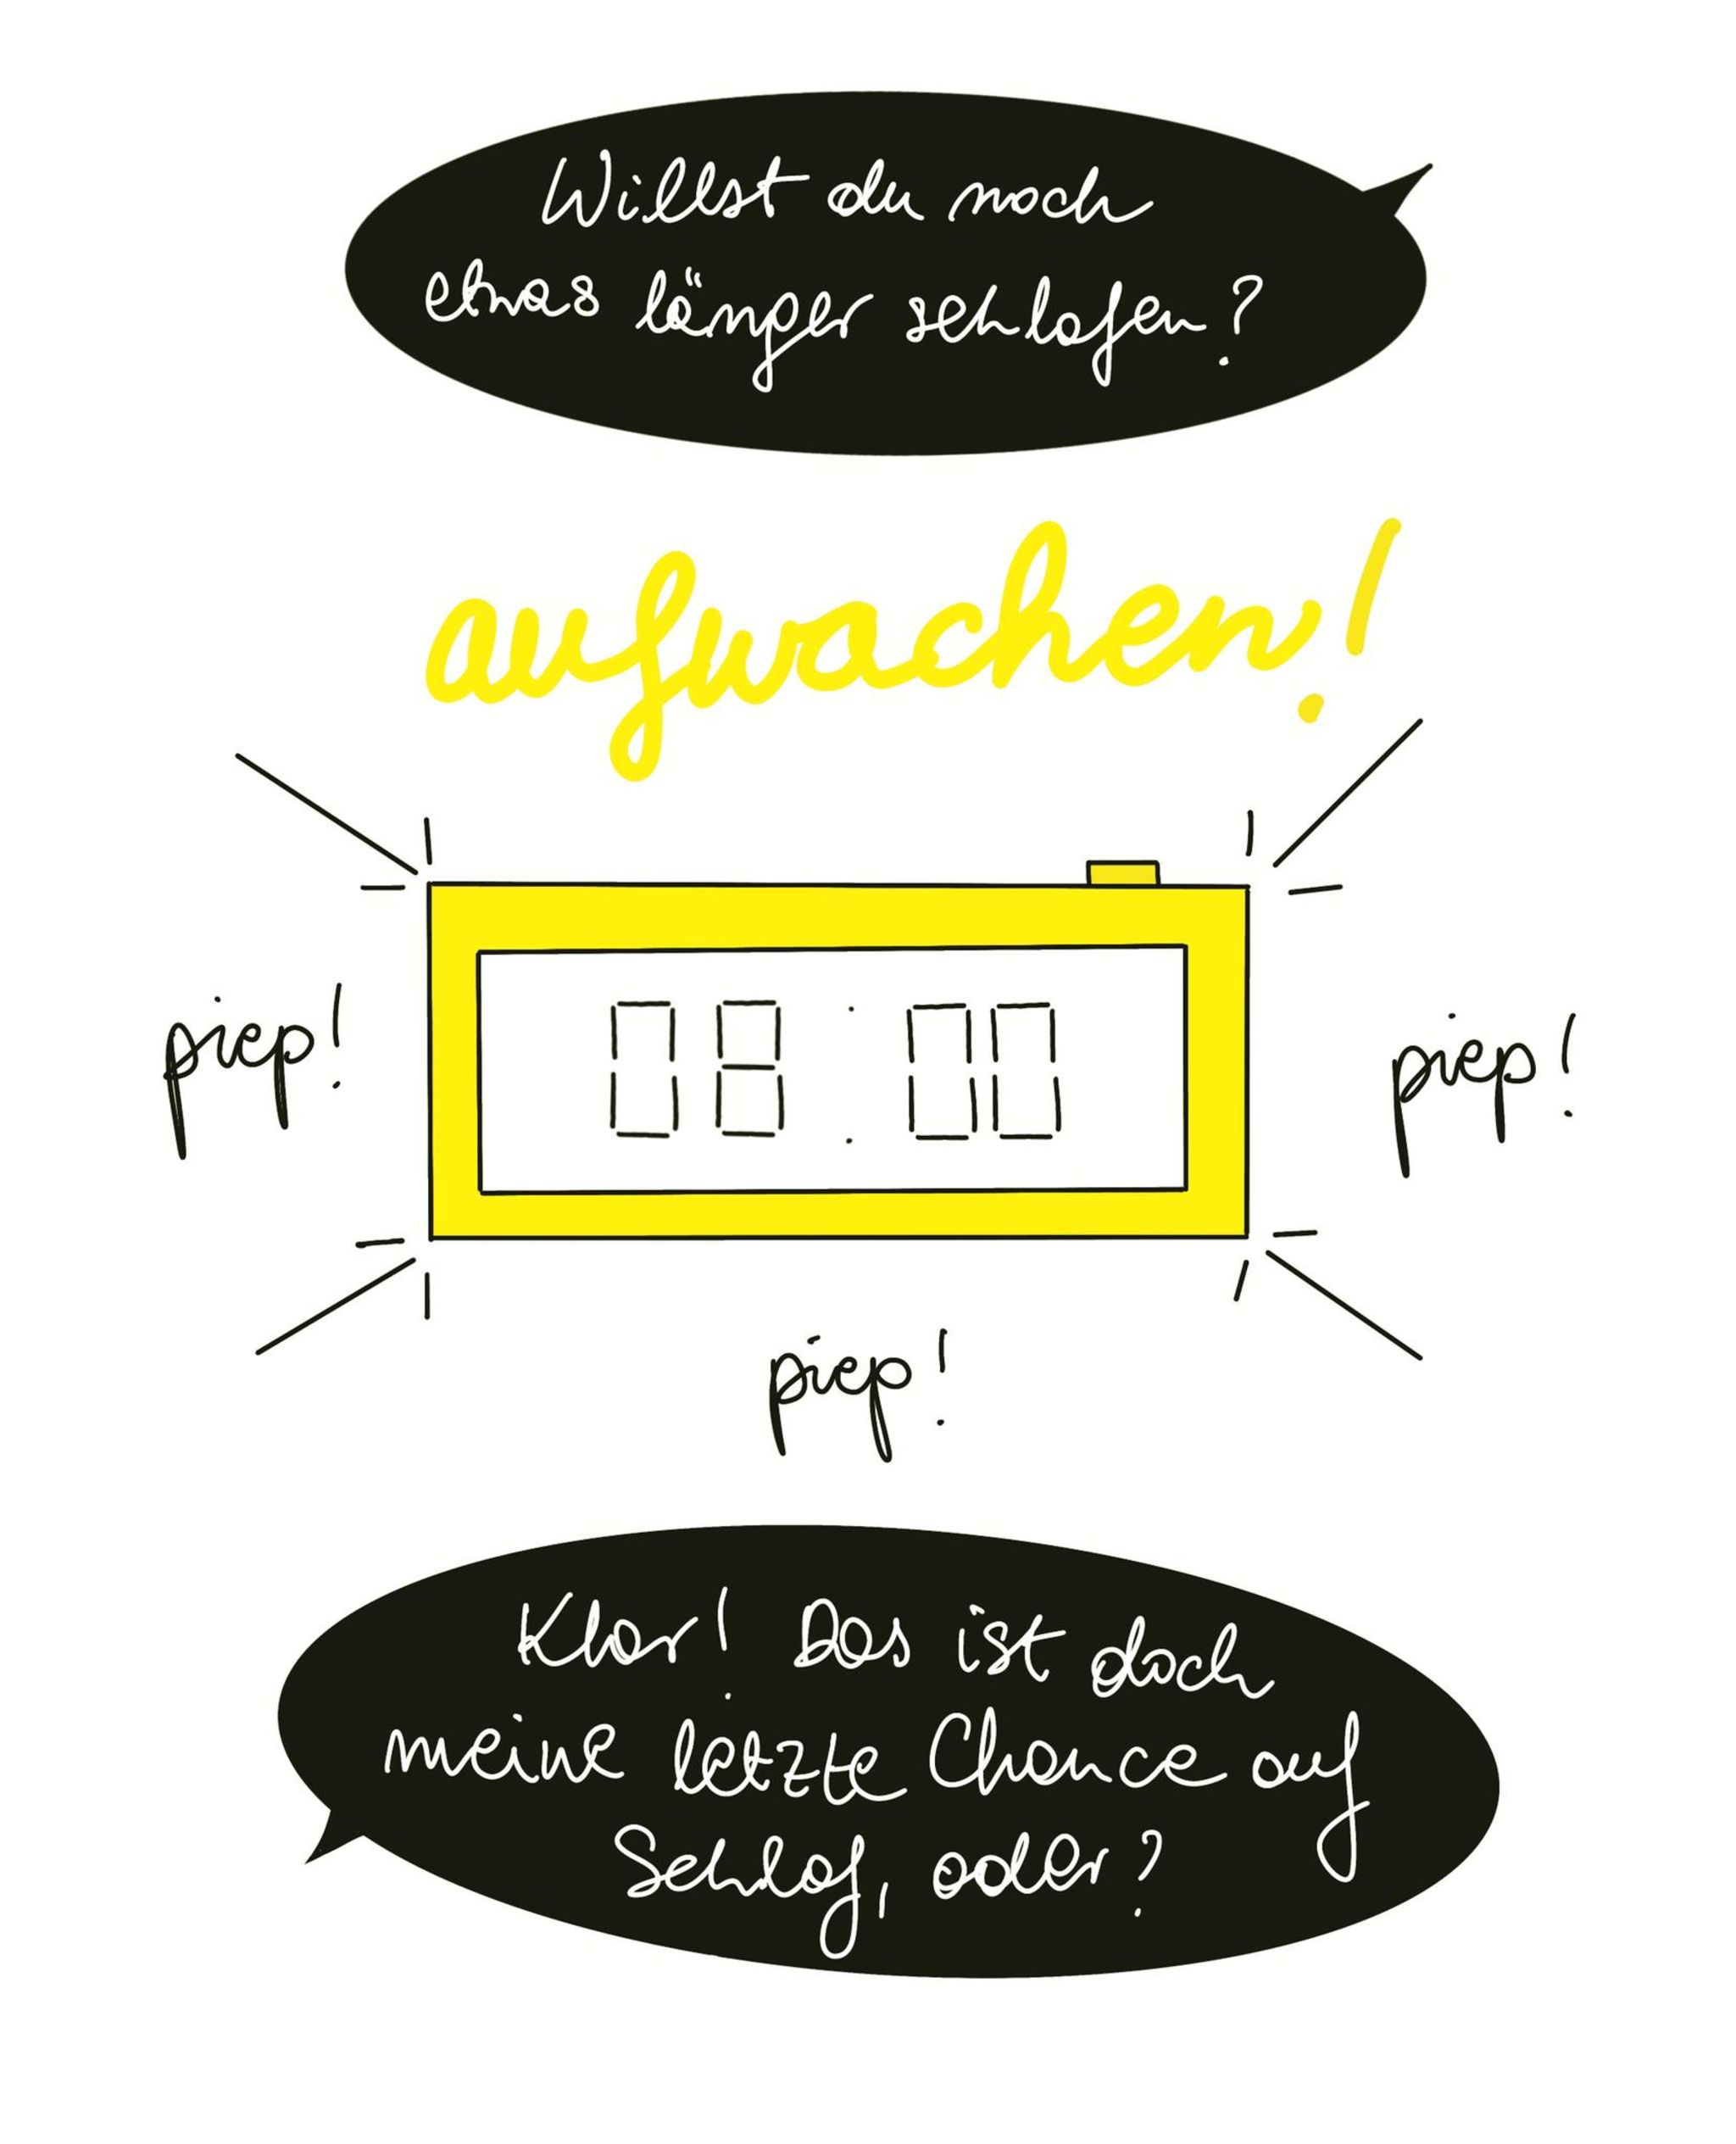 Willst du noch
etwas länger schlafen?
aufwachen!
piep!
08:00
piep!
piep!
Klar! Das ist doch
meine letzte Chance auf
Schlaf, oder?